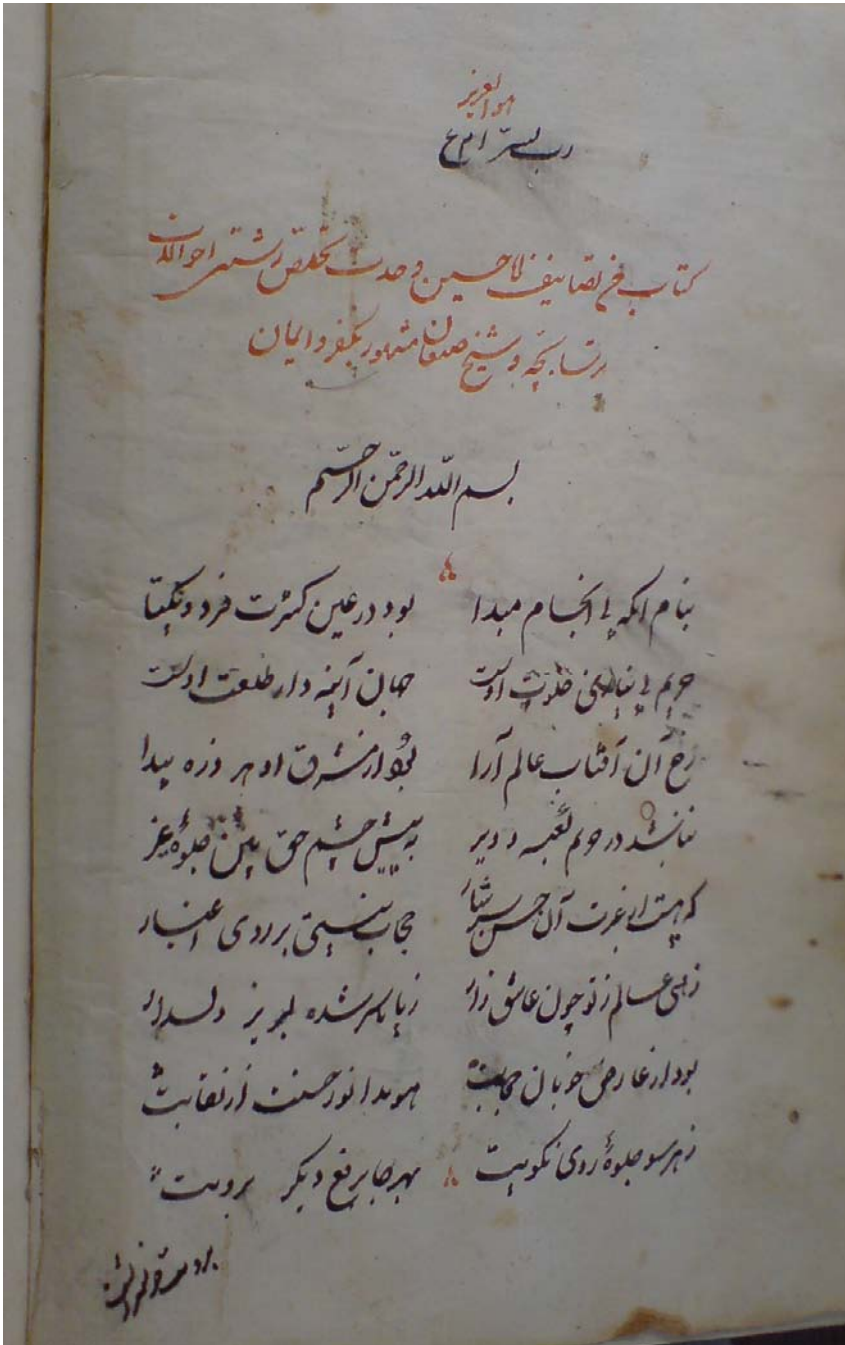 هو العزیز
رب یسر
کتاب من تصانیف ملا حسین وحدت تخلص رشتی احوالات
ترسا بچه و شیخ صنعان مشهور بکفر و ایمان
بسم الله الرحمن الرحیم
بنام انکه بی انجام مبدا بود در عین کثرت فرد و یکتا
حریم بی نیازی خلوت اوست جهان آینه دار طلعت اوست
رخ آن آفتاب عالم آرا بود از مشرق هر ذره پیدا
نباشد در حریم کعبه و دیر به پیش چشم حق بین جلوه غیر
که هست از غیرت آن حسن سرشار حجاب نیستی بر روی اغیار
زهی عالم ز تو چون عاشق زار ز پا تا سر شده لبریز دلدار
بود از عارض خوبان حجابت هویدا نور حسنت از نقابت
ز هر سو جلوهٔ روی نکویت بهر جا برقع دیگر برویت